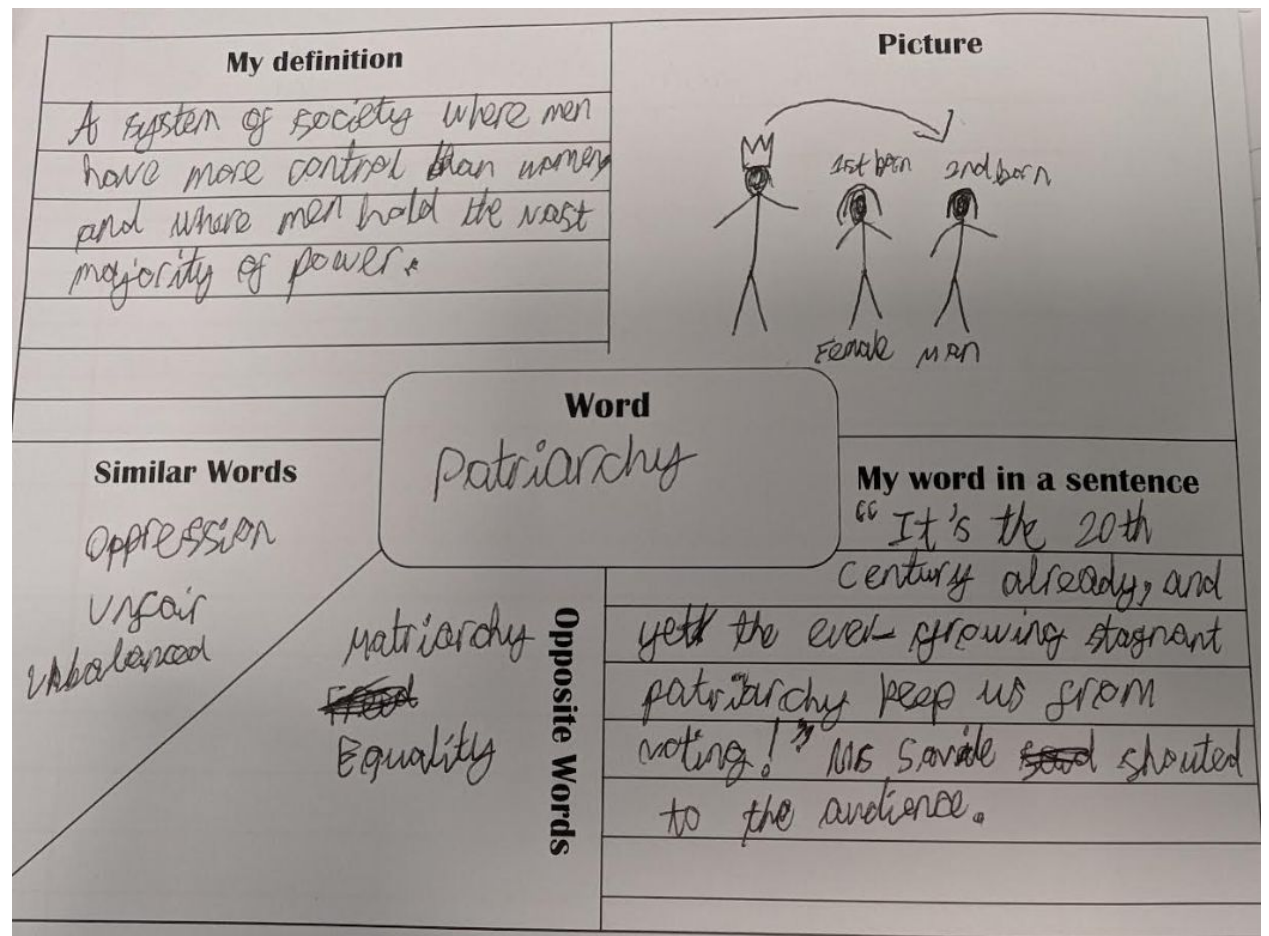 My definition
A system of society where men
have more control than women
and where men hold the vast
majority of power.
Picture
1st born 2nd born
Female Man
Word
Patriarchy
Similar Words
Oppression
Unfair
Unbalanced
Opposite Words
Matriarchy
Equality
My word in a sentence
"It's the 20th
century already, and
yet the ever-growing stagnant
patriarchy keep us from
voting!" Ms shouted
to the audience.